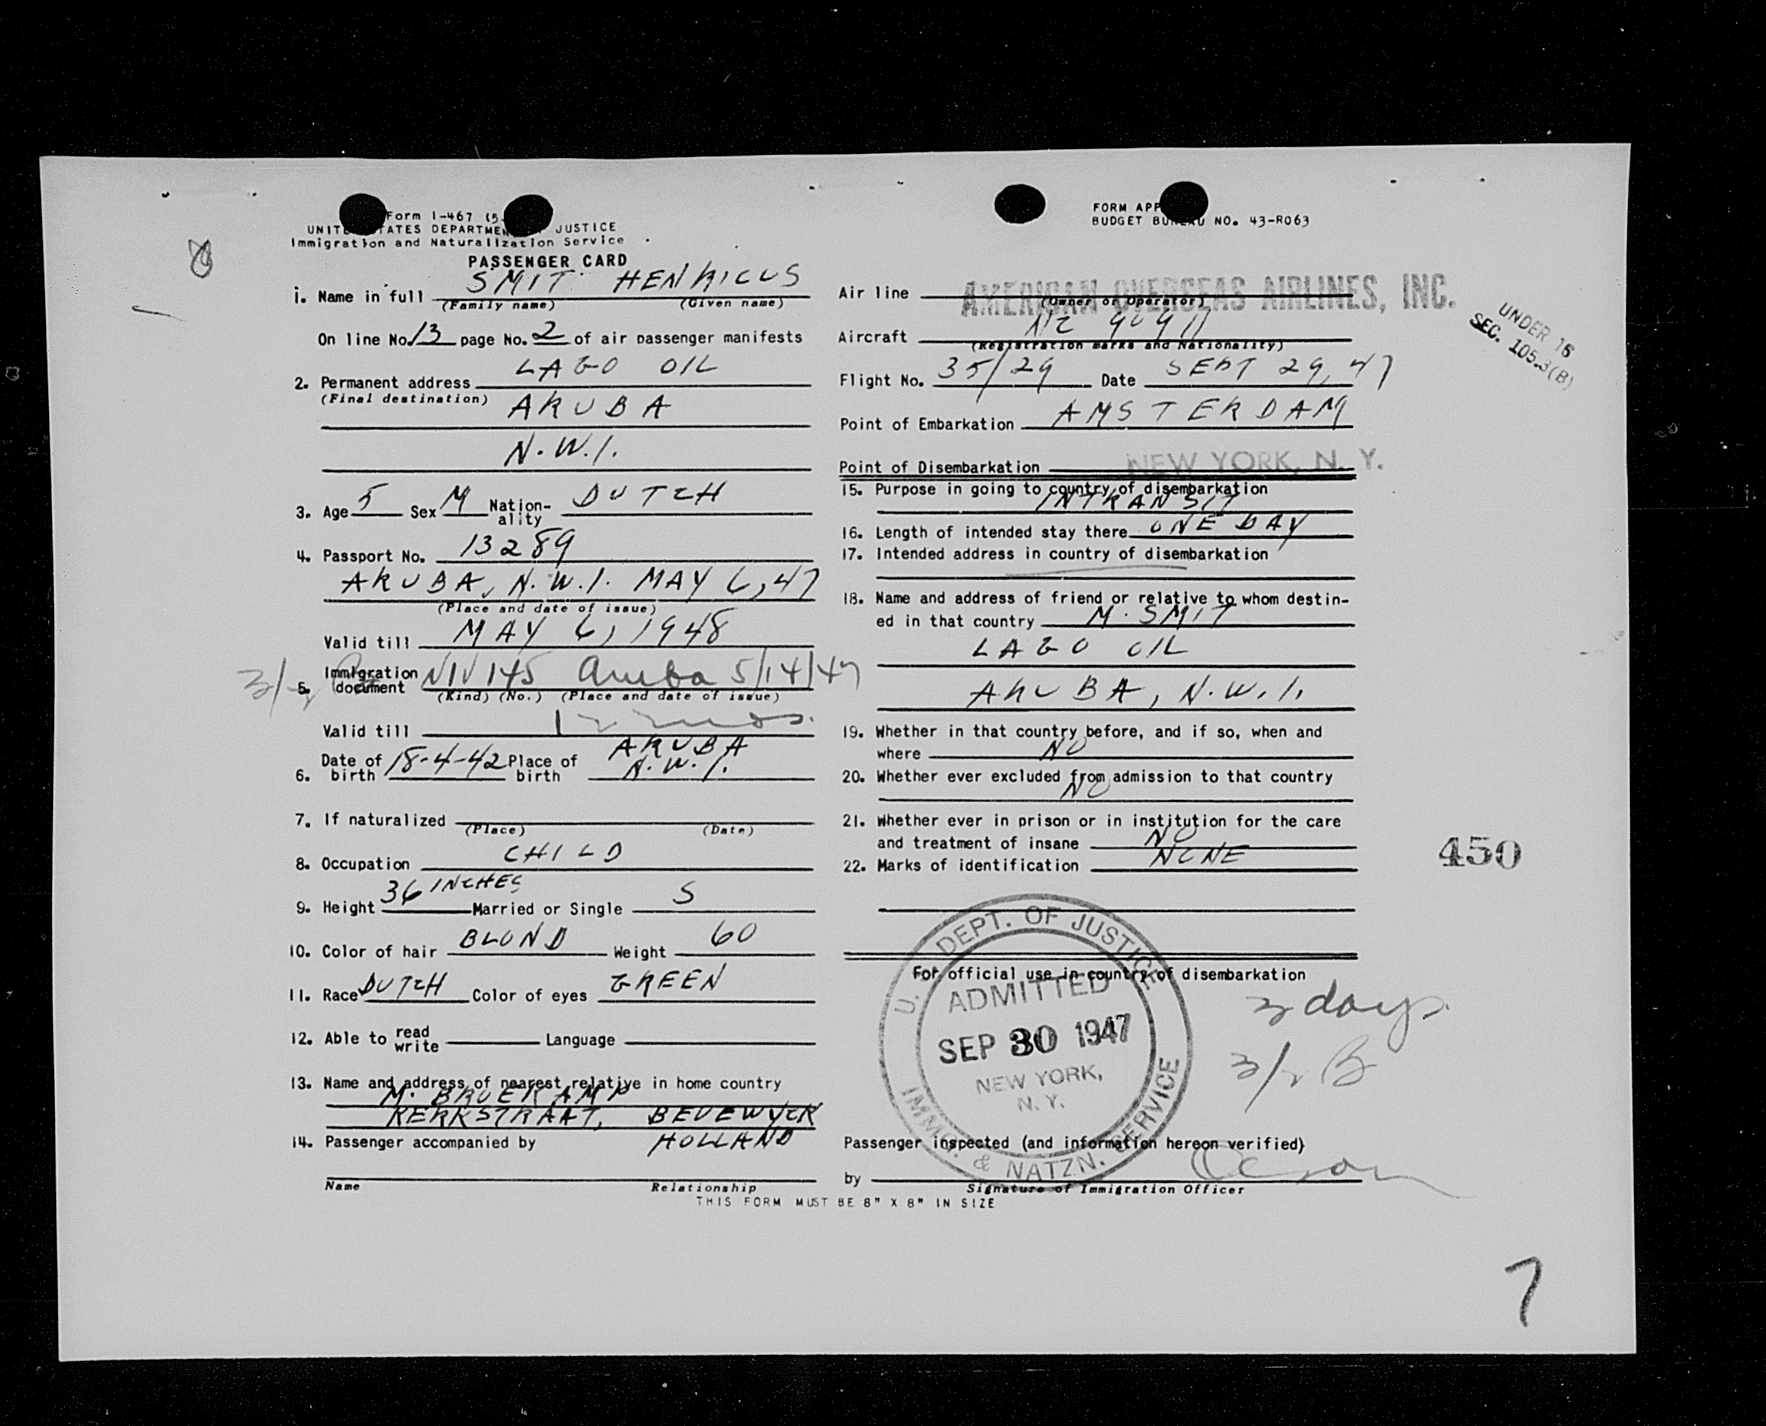 Form I-467 (5
UNIT TATES DEPARTMEN JUSTICE
Immigration and Naturalization Service
PASSENGER CARD
1. Name in full SMIT HENRICUS
(Family name) (Given name)
On line No. 13 page No. 2 of air passenger manifests
2. Permanent address LAGO OIL
(Final destination) ARUBA
N.W.I.
3. Age 5 Sex M Nation-ality DUTCH
4. Passport No. 13289
ARUBA, N.W.I. MAY 6, 47
(Place and date of issue)
Valid till MAY 6, 1948
5. Immigration document NIV 145 Aruba 5/14/47
(Kind) (No.) (Place and date of issue)
Valid till 12 mos.
6. Date of birth 18-4-42 Place of birth ARUBA N.W.I.
7. If naturalized
(Place) (Date)
8. Occupation CHILD
9. Height 36 INCHES Married or Single S
10. Color of hair BLOND Weight 60
11. Race DUTCH Color of eyes GREEN
12. Able to read write Language
13. Name and address of nearest relative in home country
M. BROEKAMP
KERKSTRAAT, BEVEWYCK
HOLLAND
14. Passenger accompanied by
Name Relationship
THIS FORM MUST BE 8" X 8" IN SIZE
FORM APP
BUDGET BUREAU NO. 43-R063
Air line AMERICAN OVERSEAS AIRLINES, INC.
(Owner or Operator)
Aircraft NC 90911
(Registration marks and Nationality)
Flight No. 35/29 Date SEPT 29, 47
Point of Embarkation AMSTERDAM
Point of Disembarkation NEW YORK, N. Y.
15. Purpose in going to country of disembarkation
INTRANSIT
16. Length of intended stay there ONE DAY
17. Intended address in country of disembarkation
18. Name and address of friend or relative to whom destin-
ed in that country M. SMIT
LAGO OIL
ARUBA, N.W.I.
19. Whether in that country before, and if so, when and
where NO
20. Whether ever excluded from admission to that country
NO
21. Whether ever in prison or in institution for the care
and treatment of insane NO
22. Marks of identification NONE
For official use in country of disembarkation
U. S. DEPT. OF JUSTICE
ADMITTED
SEP 30 1947
NEW YORK,
N. Y.
IMMG. & NATZN. SERVICE
3 days
Passenger inspected (and information hereon verified)
by
Signature of Immigration Officer
UNDER 16
SEC. 105.3(B)
450
7